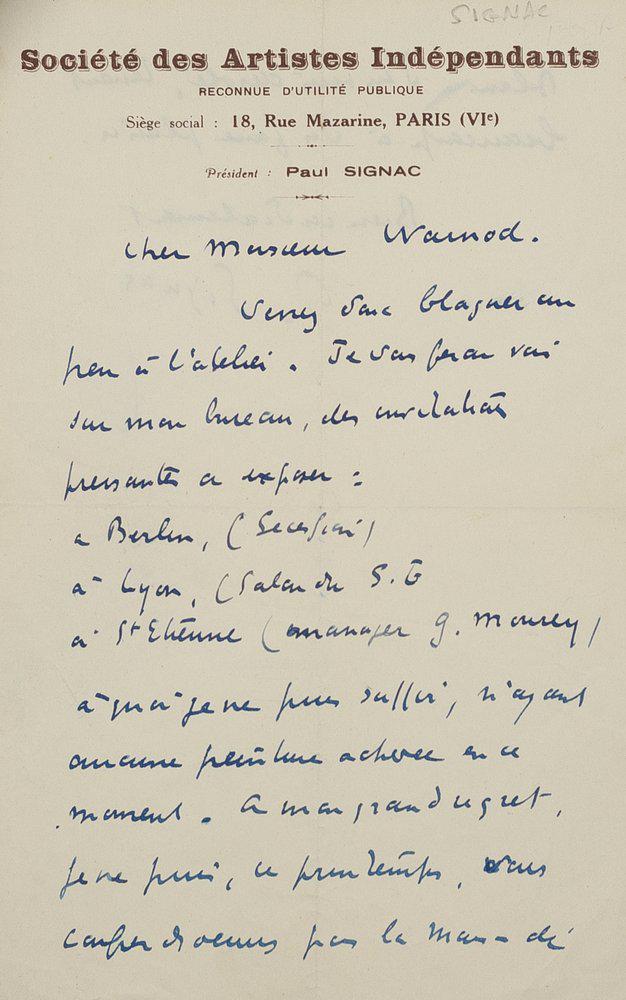 SIGNAC
Société des Artistes Indépendants
RECONNUE D'UTILITÉ PUBLIQUE
Siège social : 18, Rue Mazarine, PARIS (VIe)
Président : Paul SIGNAC
Cher Monsieur Warnod.
Venez donc blaguer un
peu à l'atelier. Je vous ferai voir
sur mon bureau, des invitations
pressantes a exposer :
a Berlin, (Secession)
à Lyon, (Salon du S. E
à St Etienne (manager G. Mourey)
à quoi je ne puis suffir, n'ayant
aucune peinture achevée en ce
moment. A mon grand regret,
je ne puis, ce printemps, vous
des œuvres pour la